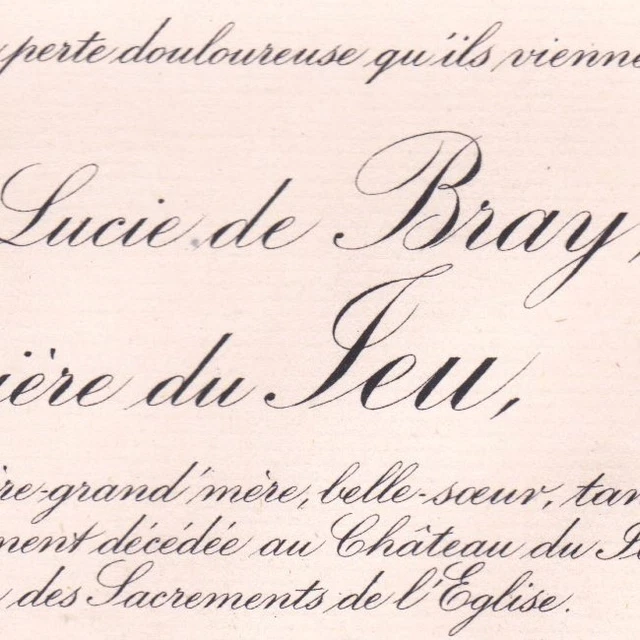 perte douloureuse qu'ils vienne
Lucie de Bray,
ière du Jeu,
re-grand'mère, belle-sœur, tan
ment décédée au Château du Je
des Sacrements de l'Eglise.